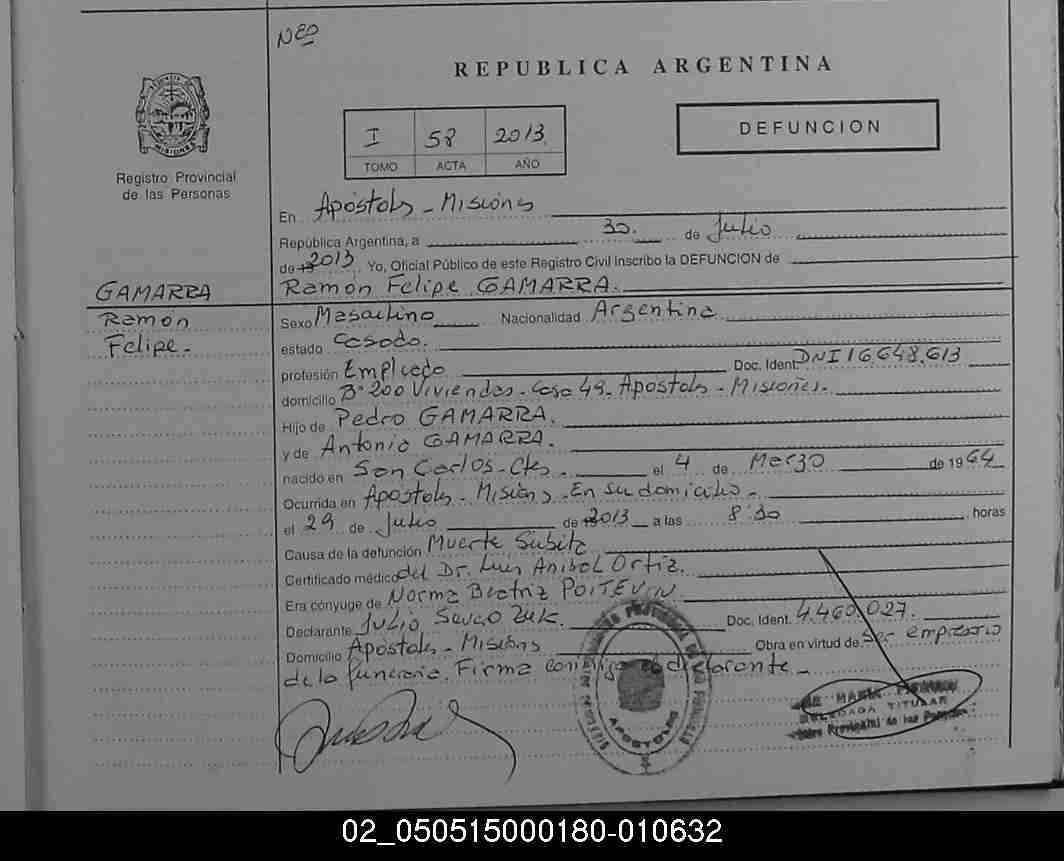 NEO
REPUBLICA ARGENTINA
I 58 2013
TOMO ACTA AÑO
DEFUNCION
Registro Provincial
de las Personas
En Apóstoles - Misiones
República Argentina, a 30. de Julio
de 2013 Yo, Oficial Público de este Registro Civil inscribo la DEFUNCION de
GAMARRA
Ramón
Felipe.-
Ramón Felipe GAMARRA.
Sexo Masculino Nacionalidad Argentina
estado Casado.
profesión Empleado Doc. Ident. DNI 16.648.613
domicilio Bº 200 Viviendas - Casa 49. Apóstoles - Misiones.
Hijo de Pedro GAMARRA.
y de Antonia GAMARRA.
nacido en San Carlos - Ctes. el 4 de Marzo de 1964
Ocurrida en Apóstoles - Misiones. En su domicilio -
el 29 de Julio de 2013 a las 8:30 horas
Causa de la defunción Muerte Subita
Certificado médico del Dr. Luis Anibal Ortiz.
Era cónyuge de Norma Beatriz POITEVIN
Declarante Julio Zuk. Doc. Ident. 4.460.027.
Domicilio Apóstoles - Misiones Obra en virtud de Ser empresario
de la funeraria. Firma conmigo el declarante -
APOSTOLES
DELEGADA TITULAR
02_050515000180-010632